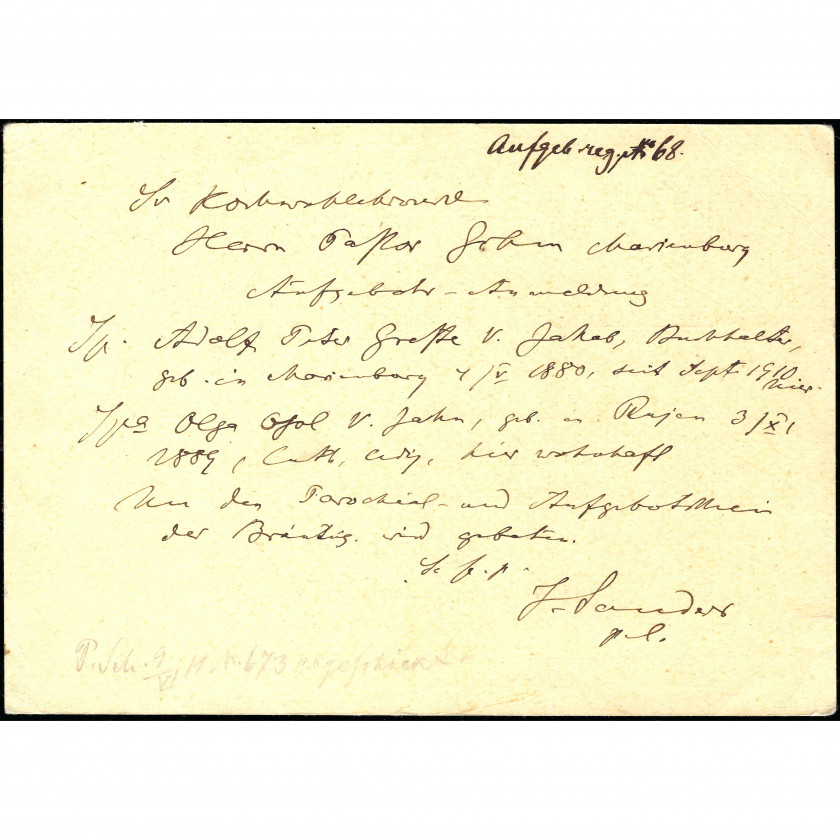 Aufgeb. reg. № 68.
Sr Hochwohlehrwürd
Herrn Pastor Marienburg
Aufgebots-Anmeldung
Adolf Peter Große V. Jakob, Buchhalter,
geb. in Marienburg 4/V 1880, seit Sept. 1910
hier.
Olga Osol V. Jahn, geb. in Rujen 3/XI
1889, luth, ledig, hier wohnhaft
Um den Parochial- und Aufgebotsschein
der Bräutig. wird gebeten.
J. Sanders
p. l.
P. Sch. 9/VI 11 № 673 abgeschickt.